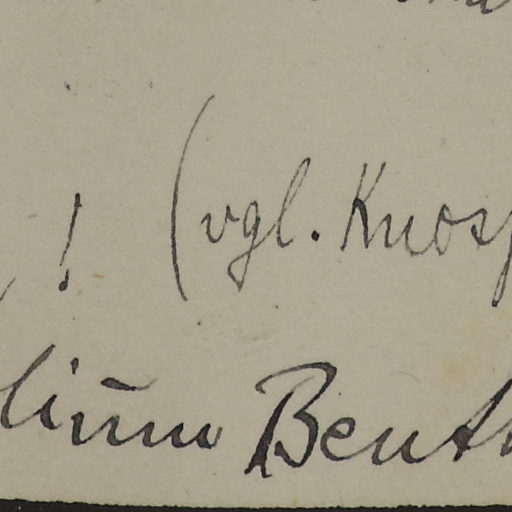 ! (vgl. Knosp
lium Benth